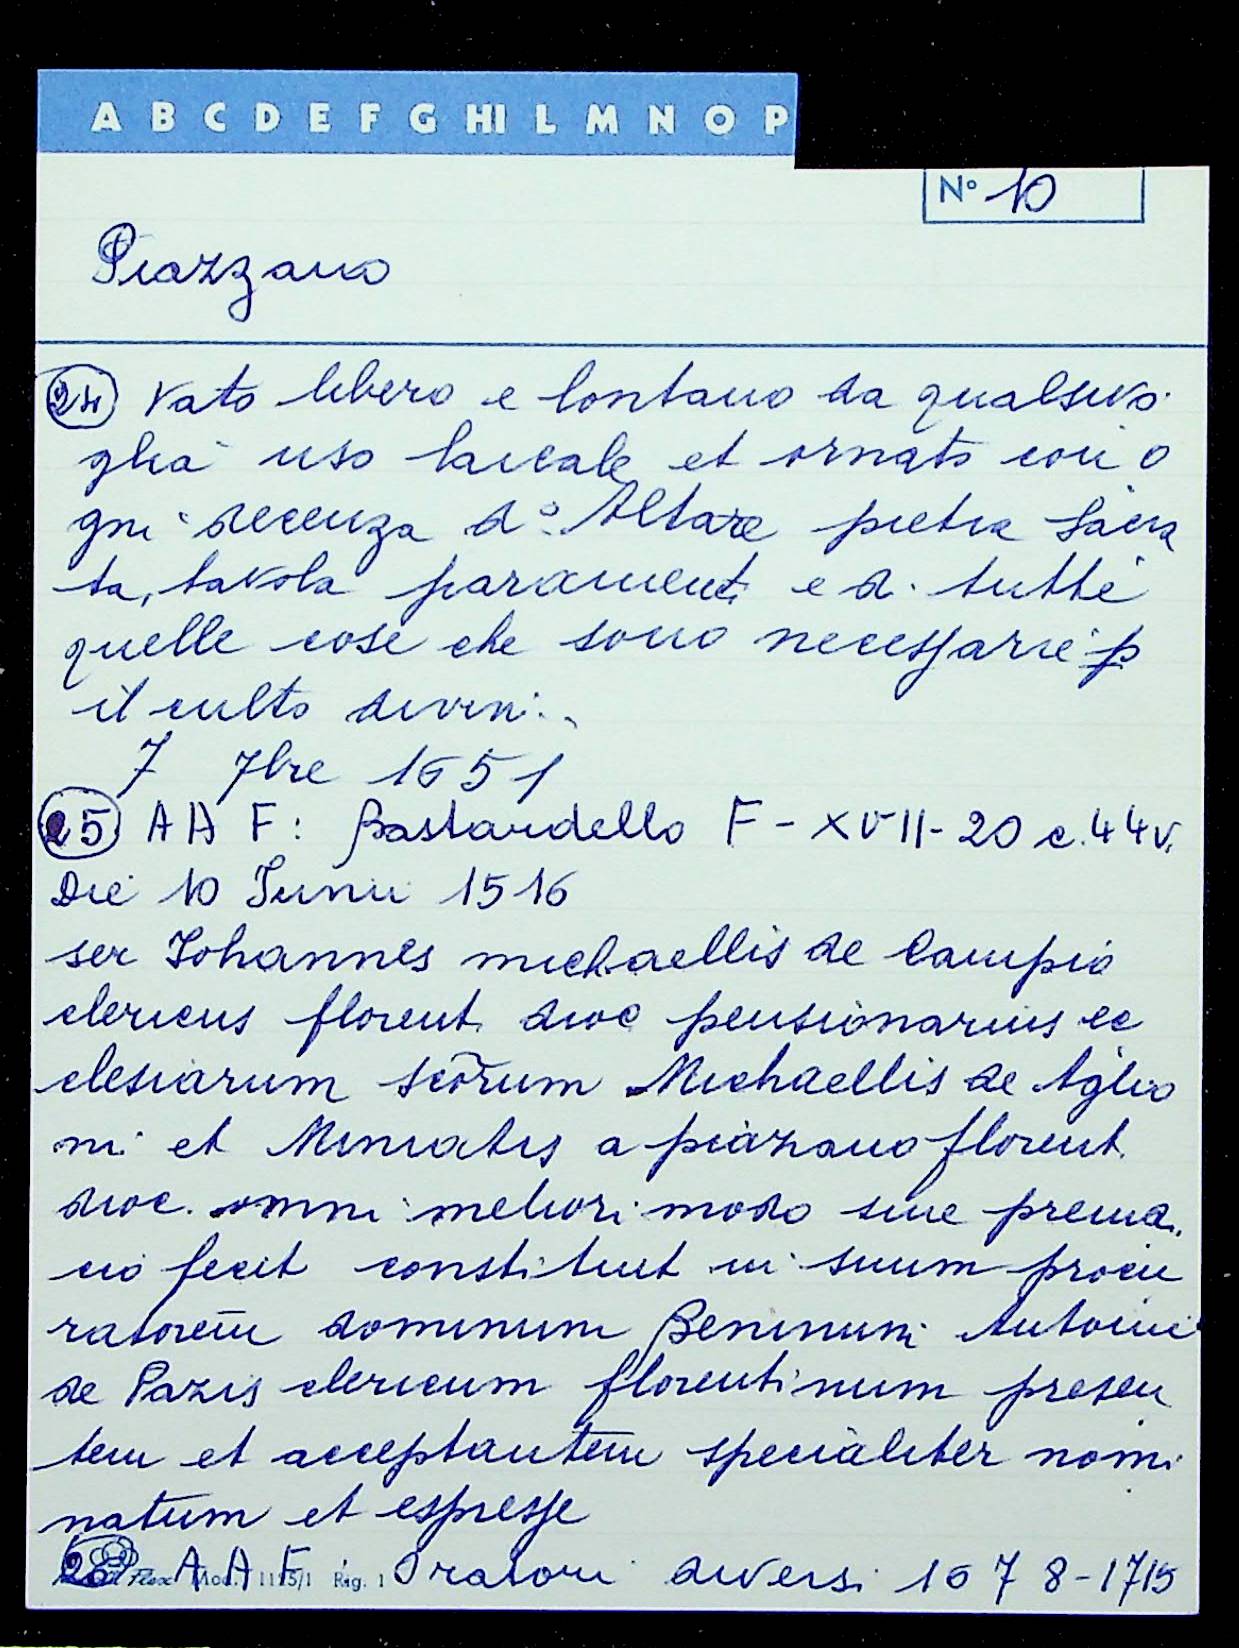 A B C D E F G HI L M N O P
N° 10
Piazzano
24 vato libero e lontano da qualsivo
glia uso laicale et ornato con o
gni decenza d° Altare pietra sacra
ta, tavola parament. e di tutte
quelle cose che sono necessarie p
il culto divin..
7 7bre 1651
25 A A F: Bastardello F - XVII - 20 c. 44v.
Die 10 Junii 1516
ser Johannes michaellis de Campio
clericus florent. dioc pensionarius ec
clesiarum scōrum Michaellis de Aglio
ni et Miniatis a piazano florent.
dioc. omni meliori modo sine
cio fecit constituit in suum procu
ratorem̄ dominum Beninum Antonii
de Pazis clericum florentinum presen
tem et acceptantem̄ specialiter nomi
natum et espresse
26 A A F: Oratori diversi 1678-1715
Flex Mod. 1115/1 Rig. 1